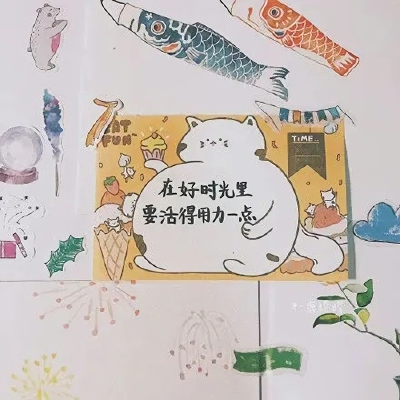 EAT
FUN
TIME..
在好时光里
要活得用力一点